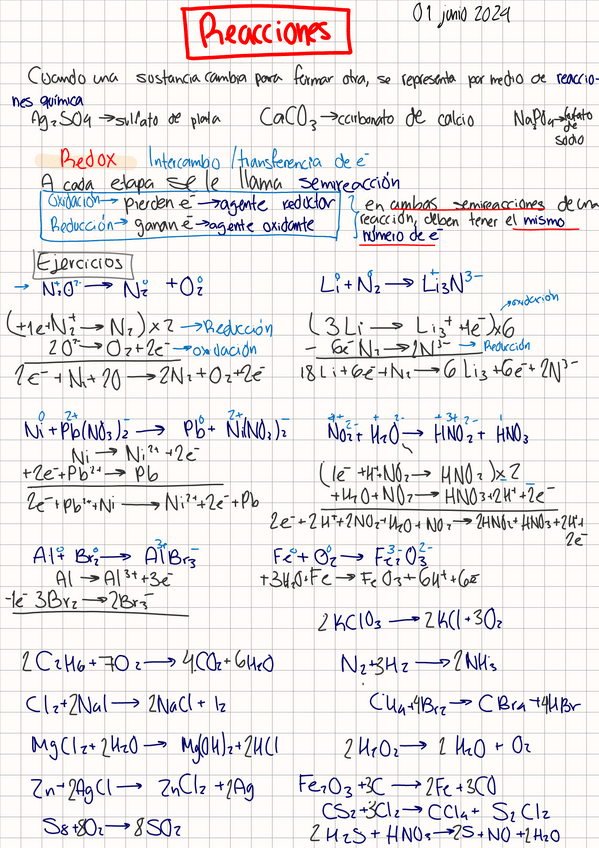 01 junio 2024
Reacciones
Cuando una sustancia cambia para formar otra, se representa por medio de reaccio-
nes química
Ag₂SO4 → sulfato de plata CaCO₃ → carbonato de calcio Na₃PO₄ → fosfato de sodio
Redox Intercambio /transferencia de e⁻
A cada etapa se le llama semireacción
Oxidación → pierden e⁻ → agente reductor
Reducción → ganan e⁻ → agente oxidante
en ambas semireacciones de una
reacción, deben tener el mismo
número de e⁻
Ejercicios
→ N₂⁺O²⁻ → N₂⁰ + O₂⁰
(+1e⁻+N₂⁺ → N₂) x 2 → Reducción
2O²⁻ → O₂+2e⁻ → oxidación
2e⁻ + N₂+2O → 2N₂+O₂+2e⁻
Li⁰+N₂⁰ → Li₃⁺N³⁻
→ oxidación
(3Li → Li₃⁺ +1e⁻)x6
- 6e⁻ N₂ → 2N³⁻ → Reducción
18Li+6e⁻+N₂ → 6Li₃+6e⁻+2N³⁻
Ni⁰+Pb²⁺(NO₃)₂⁻ → Pb⁰+Ni²⁺(NO₃)₂⁻
Ni → Ni²⁺+2e⁻
+2e⁻+Pb²⁺ → Pb
2e⁻+Pb²⁺+Ni → Ni²⁺+2e⁻+Pb
N⁴⁺O₂²⁻ + H₂⁺O²⁻ → H⁺N³⁺O₂²⁻ + HNO₃
(1e⁻ +H⁺+NO₂ → HNO₂)x2
+H₂O+NO₂ → HNO₃+2H⁺+2e⁻
2e⁻+2H⁺+2NO₂+H₂O+NO₂ → 2HNO₂+HNO₃+2H⁺+
2e⁻
Al⁰+Br₂⁰ → Al³⁺Br₃⁻
Al → Al³⁺+3e⁻
-1e⁻ 3Br₂ → 2Br₃⁻
Fe⁰+O₂⁰ → Fe₂³⁻O₃²⁻
+3H₂O+Fe → FeO₃+6H⁺+6e⁻
2KClO₃ → 2KCl+3O₂
2C₂H₆+7O₂ → 4CO₂+6H₂O
N₂+3H₂ → 2NH₃
Cl₂+2NaI → 2NaCl + I₂
CH₄+4Br₂ → CBr₄+4HBr
MgCl₂+2H₂O → Mg(OH)₂+2HCl
2H₂O₂ → 2H₂O + O₂
Zn+2AgCl → ZnCl₂+2Ag
Fe₂O₃+3C → 2Fe+3CO
CS₂+3Cl₂ → CCl₄+ S₂Cl₂
S₈+8O₂ → 8SO₂
2H₂S + HNO₃ → 2S+NO+2H₂O